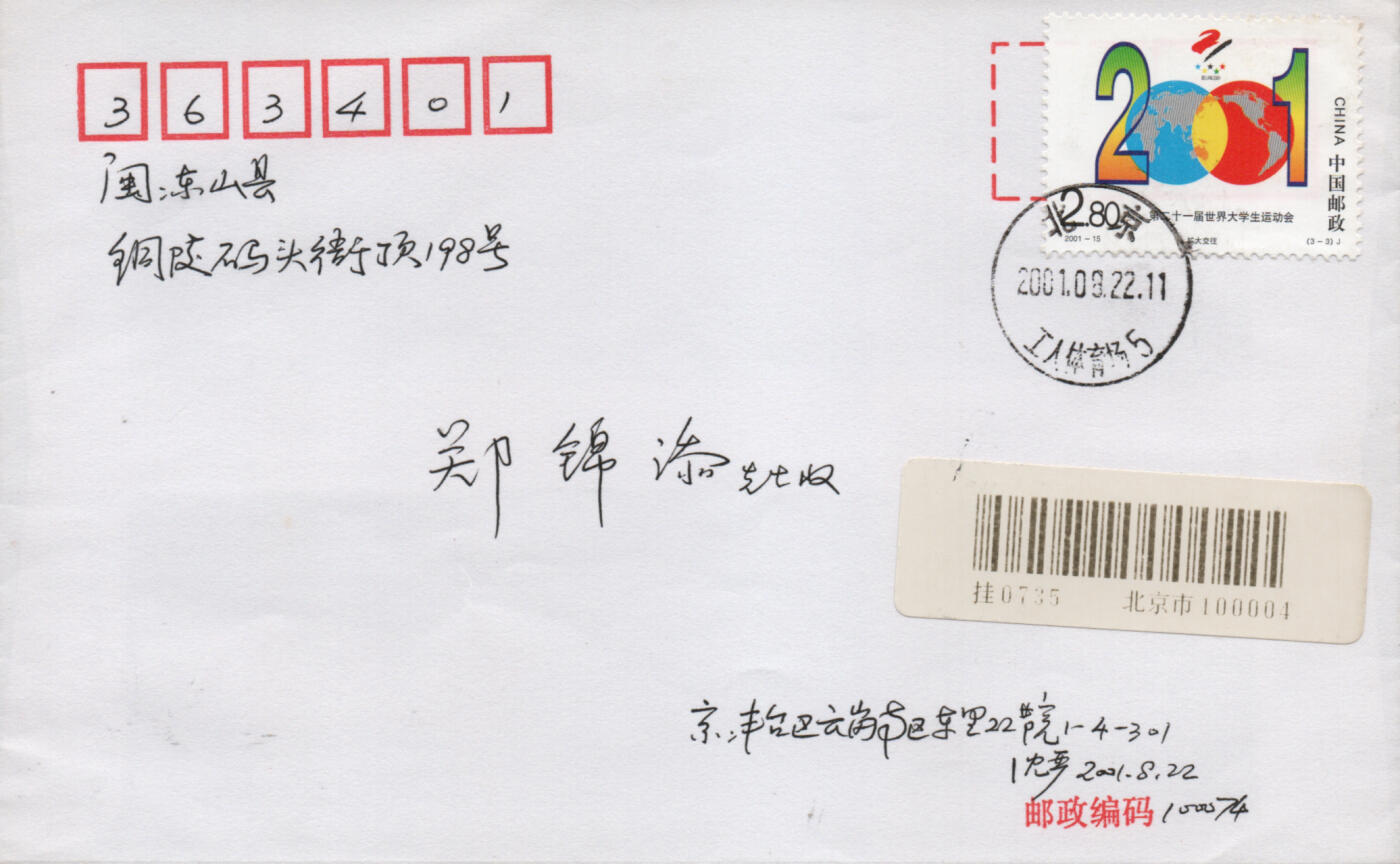 363401
闽:东山县
铜陵码头街顶198号
2001
CHINA 中国邮政
2.80
第二十一届世界大学生运动会
2001-15
(3-3)J
北京
2001.08.22.11
工人体育场5
郑锦添先生收
挂0735 北京市100004
京:丰台区云岗南区东里22院1-4-301
2001.8.22
邮政编码 100074